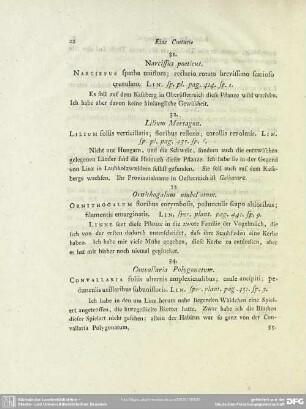 22 Eine Centurie
31.
Narcissus poeticus.
NARCISSUS spatha uniflora; nectario rotato brevissimo scarioso
crenulato. LIN. sp. pl. pag. 414. sp. 1.
Es soll auf dem Kasberg in Oberöstreich diese Pflanze wild wachsen.
Ich habe aber davon keine hinlängliche Gewißheit.
32.
Lilium Martagon.
LILIUM foliis verticillatis; floribus reflexis; corollis revolutis. LIN.
sp. pl. pag. 435. sp.
Nicht nur Hungarn, und die Schweiz, sondern auch die entzwischen
gelegenen Länder sind die Heimath dieser Pflanze. Ich habe sie in der Gegend
von Linz in Laubholzwäldern selbst gefunden. Sie soll auch auf dem Kas-
berge wachsen. Ihr Provinzialname in Oesterreich ist
33.
Ornithogalum umbellatum.
ORNITHOGALUM floribus corymbosis, pedunculis scapo altioribus;
filamentis emarginatis. LIN. spec. plant. pag. 441. sp. 9.
LINNE setzt diese Pflanze in die zweyte Familie der Vogelmilch, die
sich von der ersten dadurch unterscheidet, daß ihre Staubfäden eine Kerbe
haben. Ich habe mir viele Mühe gegeben, diese Kerbe zu entdecken, aber
es hat mir bisher noch niemal geglückt.
34.
Convallaria Polygonatum.
CONVALLARIA foliis alternis amplexicaulibus; caule ancipiti; pe-
dunculis axillaribus subunifloris. LIN. spec. plant. pag. 451. sp. 3.
Ich habe in den um Linz herum nahe liegenden Wäldchen eine Spiel-
art angetroffen, die kurzgestielte Blätter hatte. Zwar habe ich die Blüthen
dieser Spielart nicht gesehen: allein der Habitus war so ganz von der Con-
vallaria Polygonatum,
35.